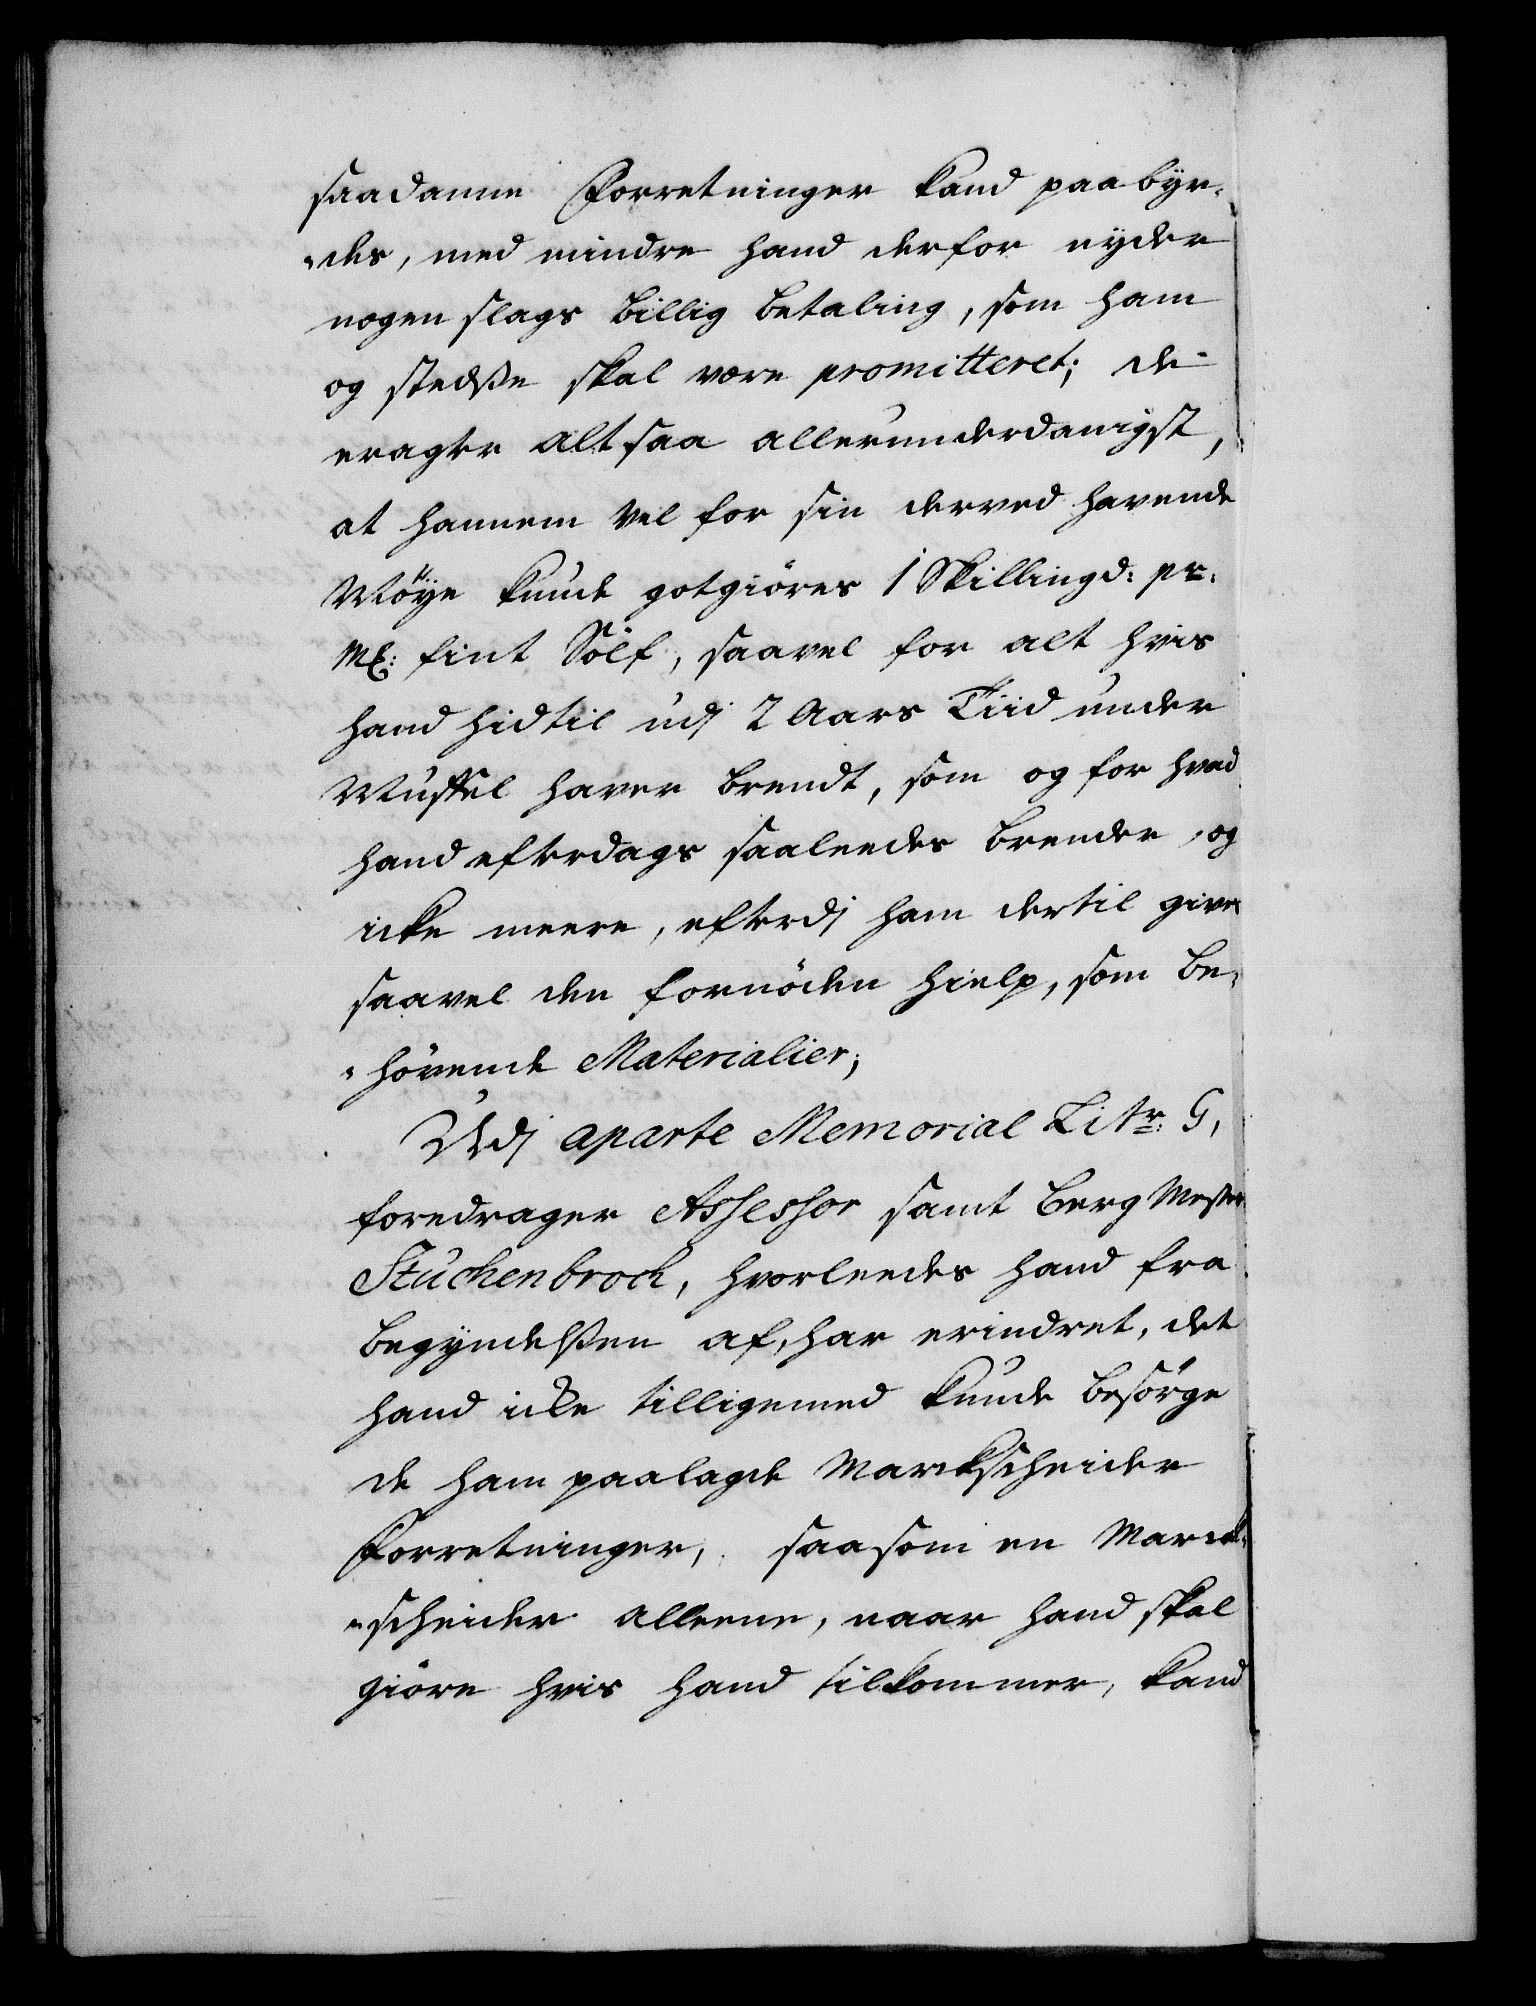 saadanne Forretninger kand paabyr-
-des, med mindre hand derfor nyder
nogen slags billig betaling, som ham
og stedsse skal være promitteret; de
eragter altsaa allerunderdanigst,
at hannem vel for sin derved havende
Möye kunde gotgiöres 1 Skilling d: pr:
Mk: fint Sölf, saavel for alt hvis
hand hidtil udj 2 Aars Tiid under
Muffel haver brendt, som og for hvad
hand efterdags saaleedes brender, og
icke meere, efterdj ham dertil gives
saavel den fornöden Hielp, som be-
-hövende Materialier;
Udj aparte Memorial Litr: G,
foredrager Assessor samt Berg Mester
Stuckenbrock, hvorleedes hand fra
begyndelssen af, har erindret, det
hand icke tilligemed kunde besörge
de ham paalagde Marckscheider
Forretninger, saasom en Marck-
-scheider alleene, naar hand skal
giöre hvis hand tilkommer, kand